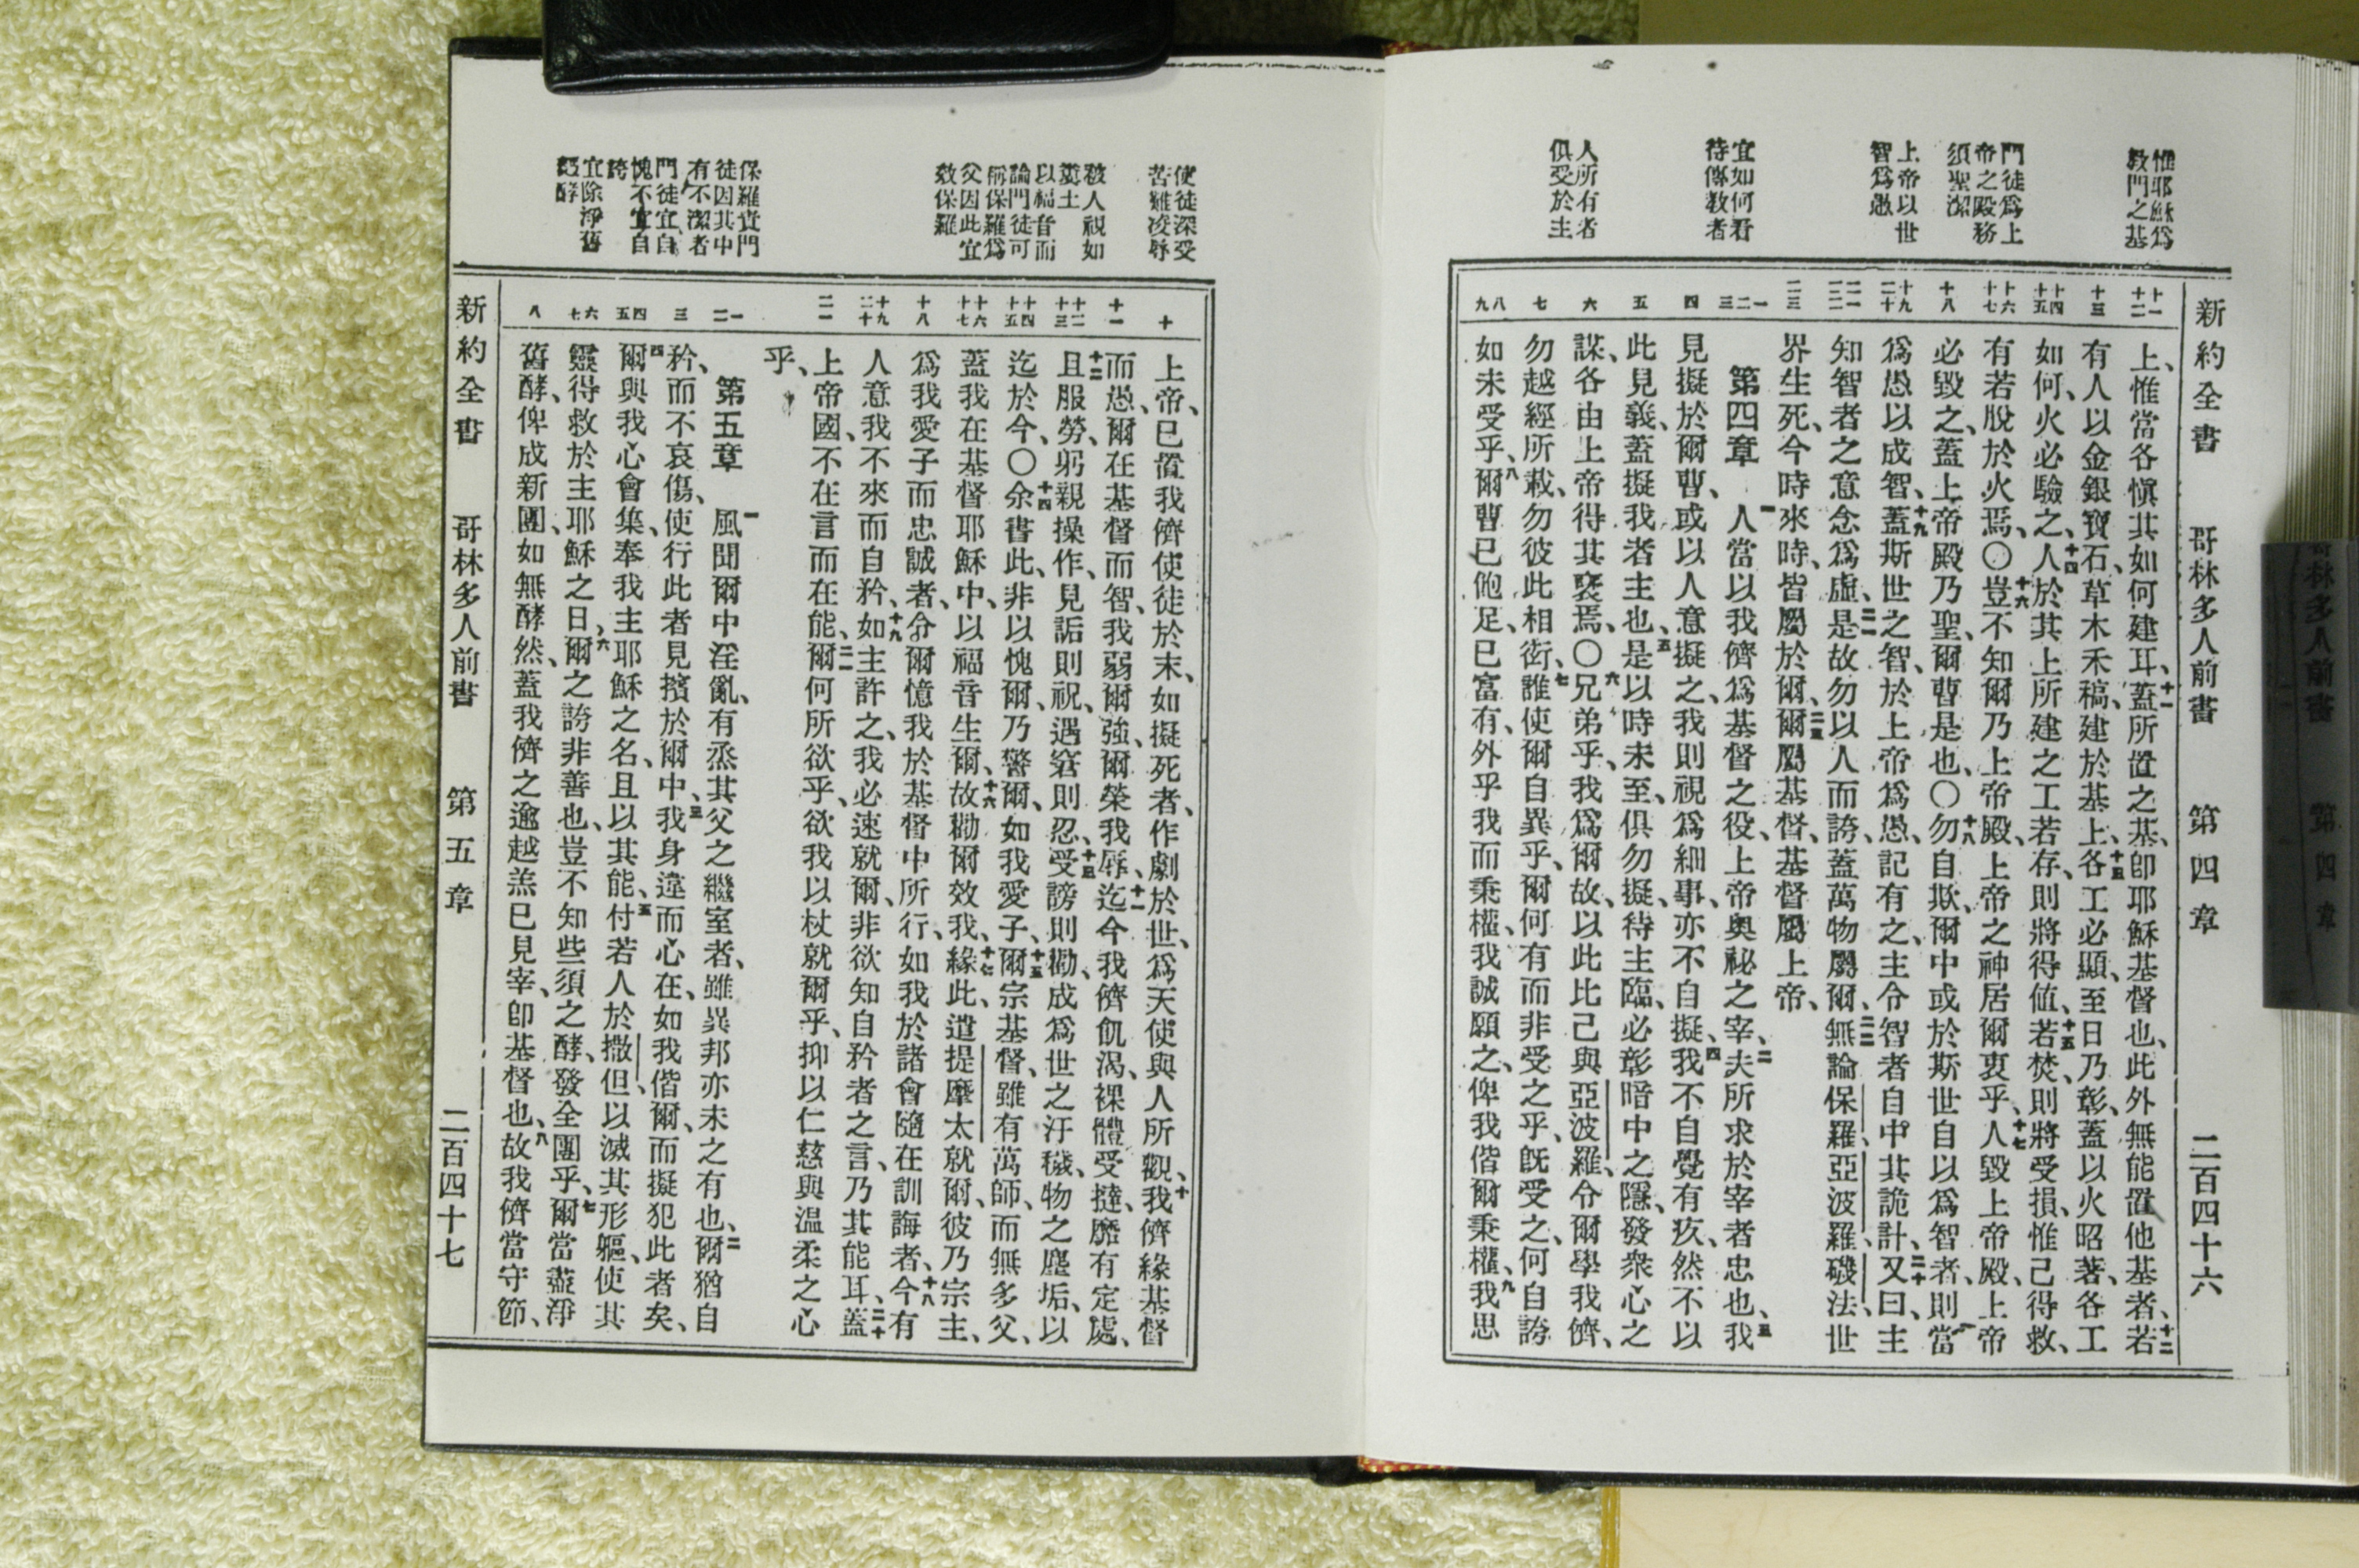 惟耶穌爲
教門之基
門徒爲上
帝之殿務
須聖潔
上帝以世
智爲愚
宜如何看
待傳教者
人所有者
俱受於主
新約全書 哥林多人前書 第四章 二百四十六
十一
十二
十三
十四
十五
十六
十七
十八
十九
二十
二一
二二
二三
一
二
三
四
五
六
七
八
九
上、惟當各愼其如何建耳、十一蓋所置之基、卽耶穌基督也、此外無能置他基者、十二若
有人以金銀寶石、草木禾稿、建於基上、十三各工必顯、至日乃彰、蓋以火昭著、各工
如何、火必驗之、十四人於其上所建之工若存、則將得値、十五若焚、則將受損、惟己得救、
有若脫於火焉、〇十六豈不知爾乃上帝殿、上帝之神居爾衷乎、十七人毀上帝殿、上帝
必毀之、蓋上帝殿乃聖、爾曹是也、〇十八勿自欺、爾中或於斯世自以爲智者、則當
爲愚以成智、十九蓋斯世之智、於上帝爲愚、記有之、主令智者自中其詭計、二十又曰、主
知智者之意念爲虛、二一是故勿以人而誇、蓋萬物屬爾、二二無論保羅、亞波羅、磯法、世
界生死、今時來時、皆屬於爾、二三爾屬基督、基督屬上帝、
第四章 一人當以我儕爲基督之役、上帝奧祕之宰、二夫所求於宰者忠也、三我
見擬於爾曹、或以人意擬之、我則視爲細事、亦不自擬、四我不自覺有疚、然不以
此見義、蓋擬我者主也、五是以時未至、俱勿擬、待主臨、必彰暗中之隱、發衆心之
謀、各由上帝得其褒焉、〇六兄弟乎、我爲爾故、以此比己與亞波羅、令爾學我儕、
勿越經所載、勿彼此相衒、七誰使爾自異乎、爾何有而非受之乎、旣受之、何自誇
如未受乎、八爾曹已飽足、已富有、外乎我而秉權、我誠願之、俾我偕爾秉權、九我思
使徒深受
苦難凌辱
被人視如
糞土
以福音而
論門徒可
稱保羅爲
父因此宜
效保羅
保羅責門
徒因其中
有不潔者
門徒宜自
愧不宜自
誇
宜除淨舊
惡酵
十
十一
十二
十三
十四
十五
十六
十七
十八
十九
二十
二一
一
二
三
四
五
六
七
八
上帝、已置我儕使徒於末、如擬死者、作劇於世、爲天使與人所觀、十我儕緣基督
而愚、爾在基督而智、我弱爾強、爾榮我辱、十一迄今我儕飢渴、裸體受撻、靡有定處、
十二且服勞、躬親操作、見詬則祝、遇窘則忍、十三受謗則勸、成爲世之汙穢、物之塵垢、以
迄於今、〇十四余書此、非以愧爾、乃警爾、如我愛子、十五爾宗基督、雖有萬師、而無多父、
蓋我在基督耶穌中、以福音生爾、十六故勸爾效我、十七緣此、遣提摩太就爾、彼乃宗主、
爲我愛子而忠誠者、令爾憶我於基督中所行、如我於諸會隨在訓誨者、十八今有
人意我不來而自矜、十九如主許之、我必速就爾、非欲知自矜者之言、乃其能耳、二十蓋
上帝國、不在言而在能、二一爾何所欲乎、欲我以杖就爾乎、抑以仁慈與温柔之心
乎、
第五章 一風聞爾中淫亂、有烝其父之繼室者、雖異邦亦未之有也、二爾猶自
矜、而不哀傷、使行此者見擯於爾中、三我身違而心在、如我偕爾、而擬犯此者矣、
四爾與我心會集、奉我主耶穌之名、且以其能、五付若人於撒但、以滅其形軀、使其
靈得救於主耶穌之日、六爾之誇非善也、豈不知些須之酵、發全團乎、七爾當盡淨
舊酵、俾成新團、如無酵然、蓋我儕之逾越羔已見宰、卽基督也、八故我儕當守節、
新約全書 哥林多人前書 第五章 二百四十七